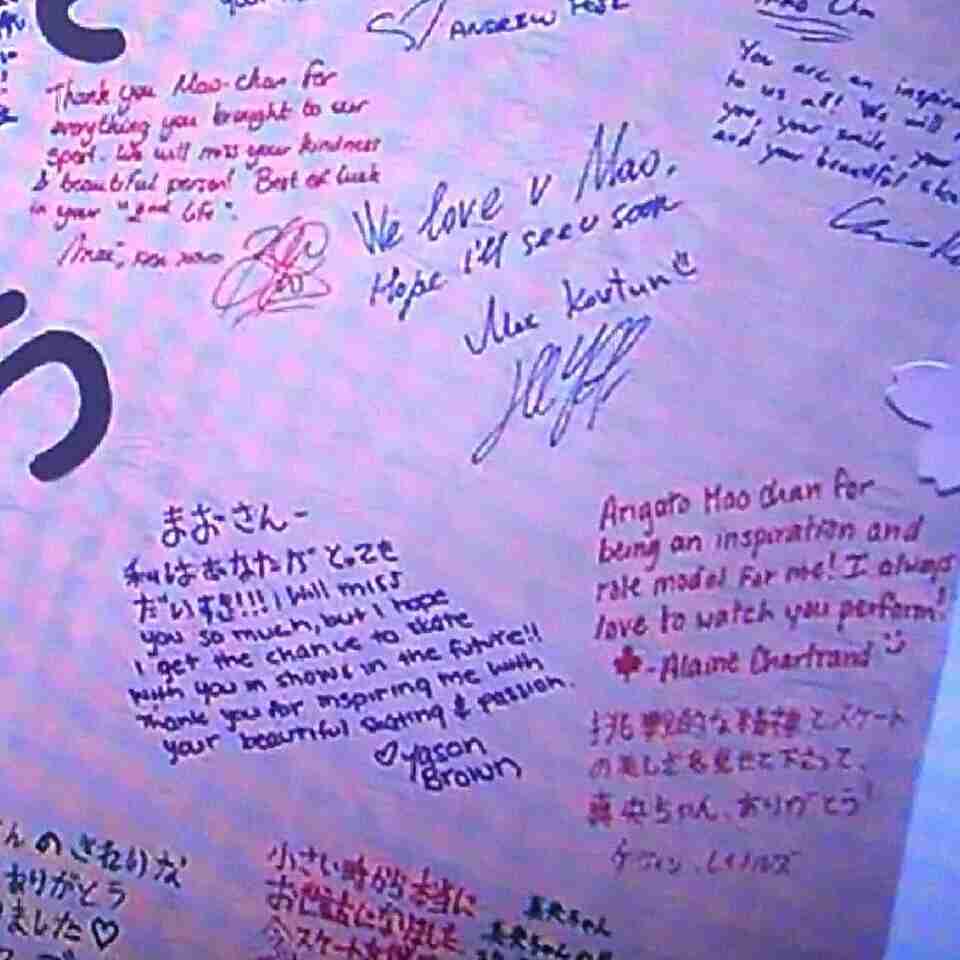 ANDREW
Thank you Mao-chan for
everything you brought to our
sport. We will miss your kindness
& beautiful person! Best of luck
in your "2nd life".
We love u Mao.
Hope i'll see u soon
Kovtun
You are an
to us all! We will
you, your smile, your
and your beautiful
まおさんー
私はあなたがとっても
だいすき!!! I will miss
you so much, but I hope
I get the chance to skate
with you in shows in the future!!
Thank you for inspiring me with
your beautiful skating & passion.
♡ Jason
Brown
Arigato Mao chan for
being an inspiration and
role model for me! I always
love to watch you perform!
-Alaine Chartrand
挑戦的な精神とスケート
の美しさを見せて下さって、
真央ちゃん、ありがとう!
ケヴィン.レイノルズ
んのきれいな
ありがとう
ました♡
小さい時から本当に
お世話になりました
スケートを
真央ちゃん
真央ちゃんの